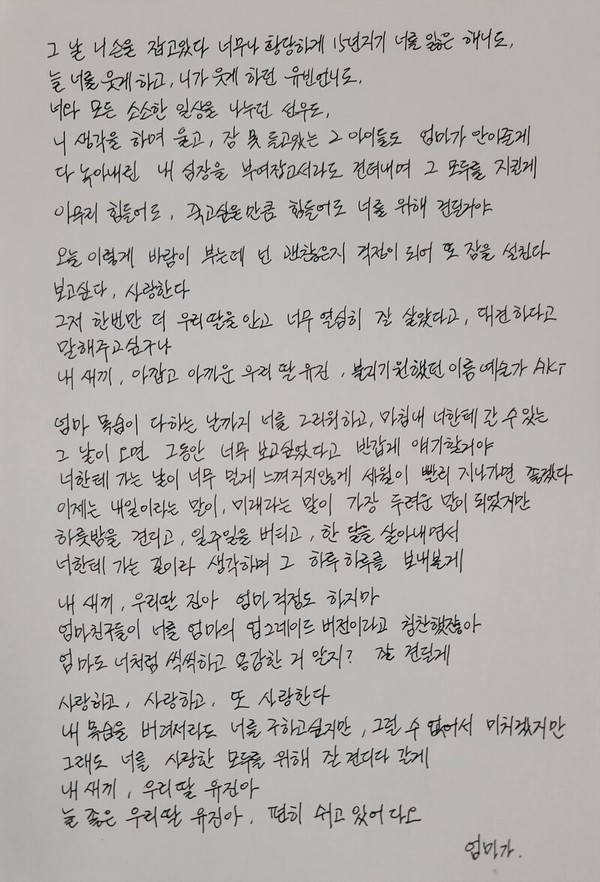 그 날 니손을 잡고왔다 너무나 황당하게 15년지기 너를 잃은 해니도,
늘 너를 웃게 하고, 니가 웃게 하던 유빈언니도,
너와 모든 소소한 일상을 나누던 선우도,
니 생각을 하며 울고, 잠 못 들고있는 그 아이들도 엄마가 안아줄게
다 녹아내린 내 심장을 부여잡고서라도 견뎌내며 그 모두를 지킬게
아무리 힘들어도, 죽고싶을만큼 힘들어도 너를 위해 견딜거야
오늘 이렇게 바람이 부는데 넌 괜찮은지 걱정이 되어 또 잠을 설친다
보고싶다, 사랑한다
그저 한번만 더 우리딸을 안고 너무 열심히 잘 살았다고, 대견하다고
말해주고싶구나
내 새끼, 아깝고 아까운 우리 딸 유진, 본지기원했던 이름 예술가 AKI
엄마 목숨이 다하는 날까지 너를 그리워하고, 마침내 너한테 갈 수 있는
그 날이 오면 그동안 너무 보고싶었다고 반갑게 얘기할거야
너한테 가는 날이 너무 멀게 느껴지지않게 세월이 빨리 지나가면 좋겠다
이제는 내일이라는 말이, 미래라는 말이 가장 두려운 말이 되었지만
하룻밤을 견디고, 일주일을 버티고, 한 달을 살아내면서
너한테 가는 길이라 생각하며 그 하루하루를 보내볼게
내 새끼, 우리딸 진아 엄마걱정도 하지마
엄마친구들이 너를 엄마의 업그레이드 버전이라고 칭찬했잖아
엄마도 너처럼 씩씩하고 용감한 거 알지? 잘 견딜게
사랑하고, 사랑하고, 또 사랑한다
내 목숨을 버려서라도 너를 구하고싶지만, 그럴 수 없어서 미치겠지만
그래도 너를 사랑한 모두를 위해 잘 견디다 갈게
내 새끼, 우리딸 유진아
늘 좋은 우리딸 유진아, 편히 쉬고 있어다오
엄마가.